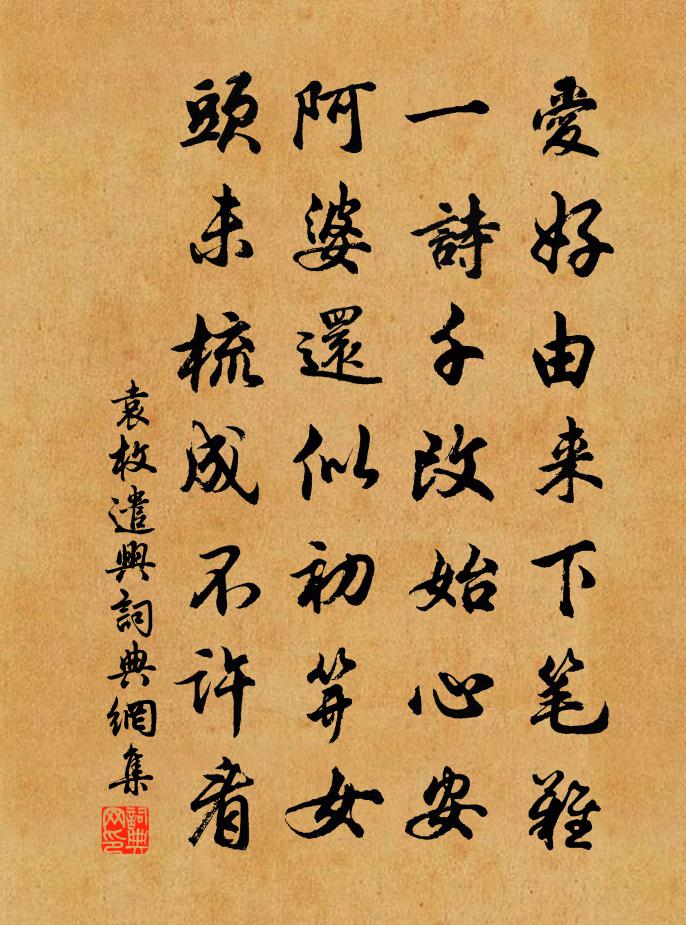 愛好由来下笔難
一詩千改始心安
阿婆還似初笄女
頭未梳成不許看
袁枚遣興詞典網集
詞典网印